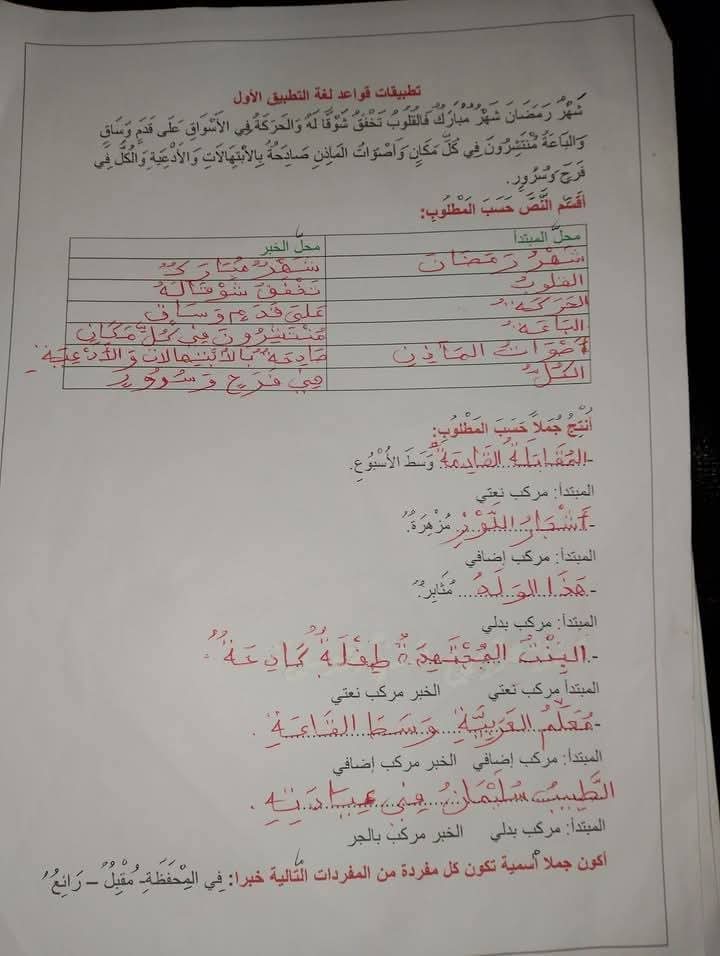 تطبيقات قواعد لغة التطبيق الأول
شَهْرُ رَمَضَانَ شَهْرٌ مُبَارَكٌ فَالْقُلُوبُ تَخْفِقُ شَوْقًا لَهُ وَالْحَرَكَةُ فِي الْأَسْوَاقِ عَلَى قَدَمٍ وَسَاقٍ
وَالْبَاعَةُ مُنْتَشِرُونَ فِي كُلِّ مَكَانٍ وَأَصْوَاتُ الْمَآذِنِ صَادِحَةٌ بِالِابْتِهَالَاتِ وَالْأَدْعِيَةِ وَالْكُلُّ فِي
فَرَحٍ وَسُرُورٍ.
أُقَسِّمُ النَّصَّ حَسَبَ الْمَطْلُوبِ:
محلّ المبتدأ محلّ الخبر
شَهْرُ رَمَضَانَ شَهْرٌ مُبَارَكٌ
القلوبُ تَخْفِقُ شَوْقًا لَهُ
الحَرَكَةُ عَلَى قَدَمٍ وَسَاقٍ
البَاعَةُ مُنْتَشِرُونَ فِي كُلِّ مَكَانٍ
أَصْوَاتُ المَآذِنِ صَادِحَةٌ بِالاِبْتِهَالَاتِ وَالأَدْعِيَةِ
الكُلُّ فِي فَرَحٍ وَسُرُورٍ
أُنْتِجُ جُمَلًا حَسَبَ الْمَطْلُوبِ:
-المُقَابَلَةُ القَادِمَةُ وَسَطَ الْأُسْبُوعِ.
المبتدأ: مركب نعتي
-أَشْجَارُ اللَّوْزِ مُزْهِرَةٌ.
المبتدأ: مركب إضافي
-هَذَا الوَلَدُ مُثَابِرٌ.
المبتدأ: مركب بدلي
-البِنْتُ المُجْتَهِدَةُ طِفْلَةٌ
المبتدأ مركب نعتي الخبر مركب نعتي
-مُعَلِّمُ العَرَبِيَّةِ وَسَطَ القَاعَةِ.
المبتدأ: مركب إضافي الخبر مركب إضافي
الطَّبِيبُ سُلَيْمَانُ فِي عِيَادَتِهِ.
المبتدأ: مركب بدلي الخبر مركب بالجر
أكون جملا اسمية تكون كل مفردة من المفردات التّالية خبرا: فِي الْمِحْفَظَةِ- مُقْبِلٌ – رَائِعٌ